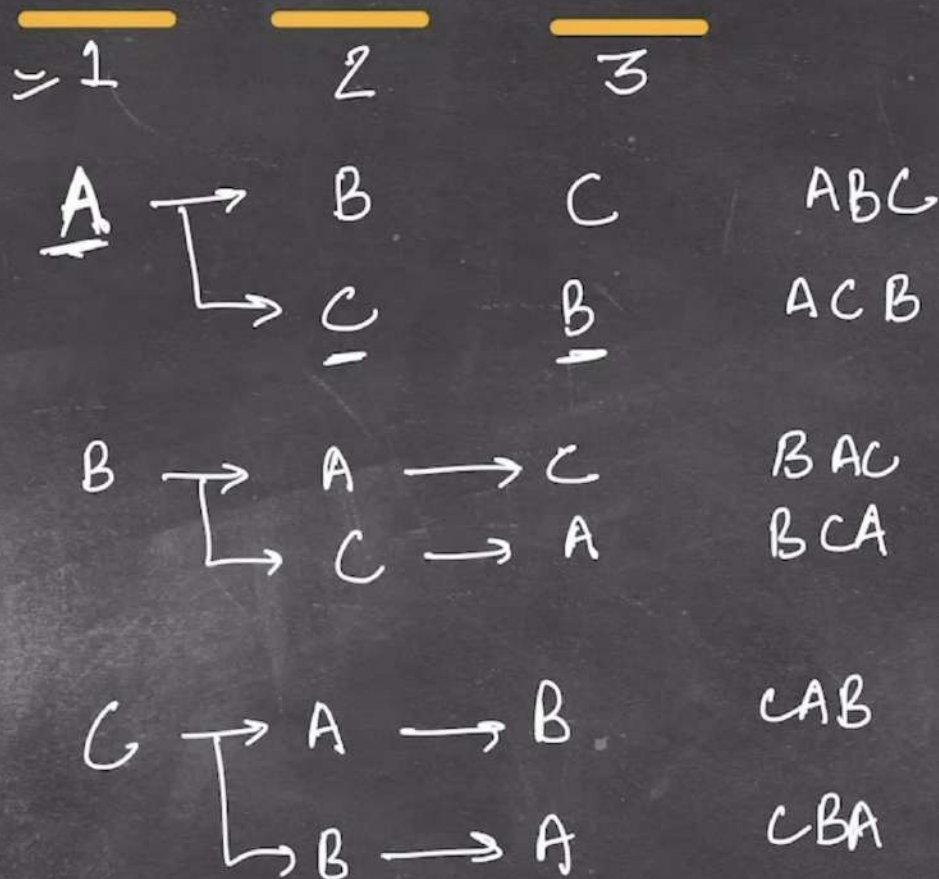 = 1 2 3
A → B C ABC
→ C B ACB
B → A → C BAC
→ C → A BCA
C → A → B CAB
→ B → A CBA